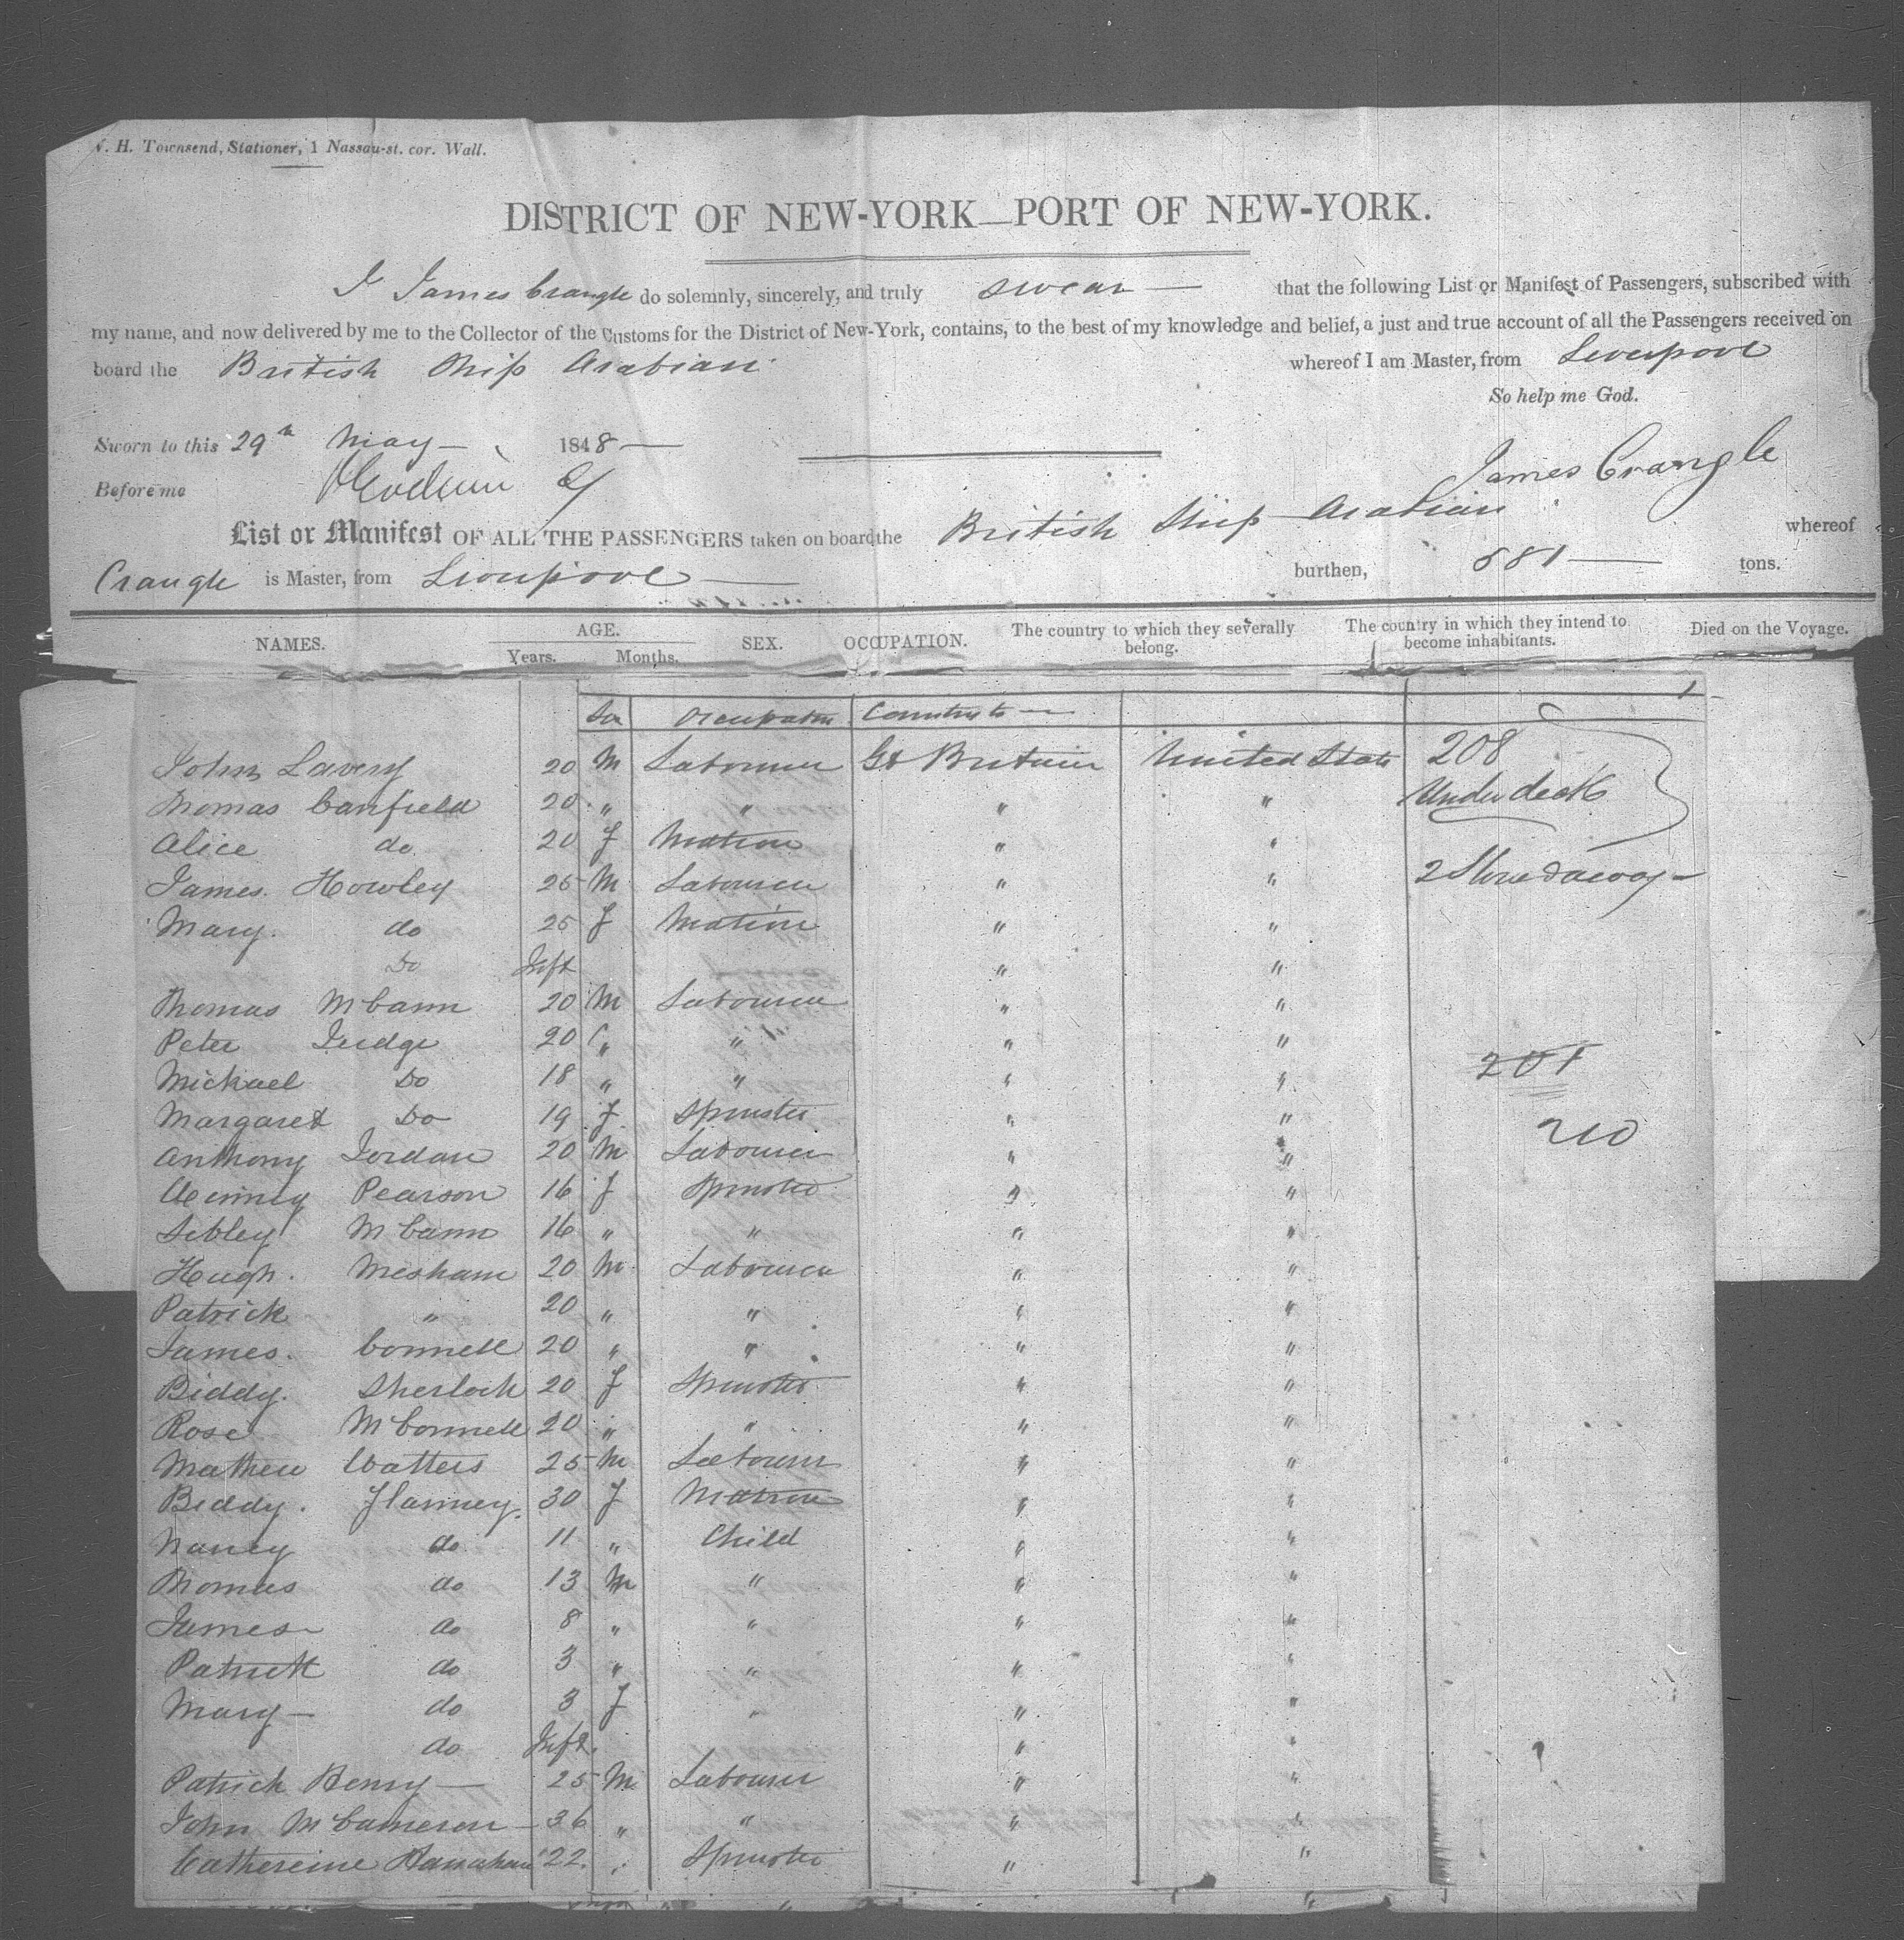 H. Townsend, Stationer, 1 Nassau-st. cor. Wall.
DISTRICT OF NEW-YORK—PORT OF NEW-YORK.
I James Crangle do solemnly, sincerely, and truly swear — that the following List or Manifest of Passengers, subscribed with
my name, and now delivered by me to the Collector of the Customs for the District of New-York, contains, to the best of my knowledge and belief, a just and true account of all the Passengers received on
board the British Ship Arabian whereof I am Master, from Liverpool
So help me God.
Sworn to this 29th May — 1848 —
James Crangle
Before me
List or Manifest OF ALL THE PASSENGERS taken on board the British Ship Arabian whereof
Crangle is Master, from Liverpool — burthen, 881 — tons.
NAMES. AGE. Years. Months. SEX. OCCUPATION. The country to which they severally belong. The country in which they intend to become inhabitants. Died on the Voyage.
1
Sex Occupation
John Lavery 20 M Labourer Gt Britain United States 208
Thomas Canfield 20 " " " " Under deck
Alice do 20 f Matron " "
James Howley 25 M Labourer " " 2
Mary. do 25 f Matron " "
Do Inft " "
Thomas McCann 20 M Labourer " "
Peter Judge 20 " " " "
Michael Do 18 " " " "
Margaret Do 19 f Spinster " "
201
Anthony Jordan 20 M Labourer " "
210
Pearson 16 f Spinster " "
Sibley McCann 16 " " " "
Hugh. Mesham 20 M Labourer " "
Patrick " 20 " " " "
James. Connell 20 " " " "
Biddy. Sherlock 20 f Spinster " "
Rose McConnell 20 " " " "
Mathew Watters 25 M Labourer " "
Biddy. Flanney. 30 f Matron " "
Nancy do 11 " Child " "
Thomas do 13 M " " "
James do 8 " " " "
Patrick do 3 " " " "
Mary — do 3 f " " "
do Inft. " "
Patrick Henry — 25 M Labourer " "
John McCameron — 36 " " " "
Cathereine 22. " Spinster " "